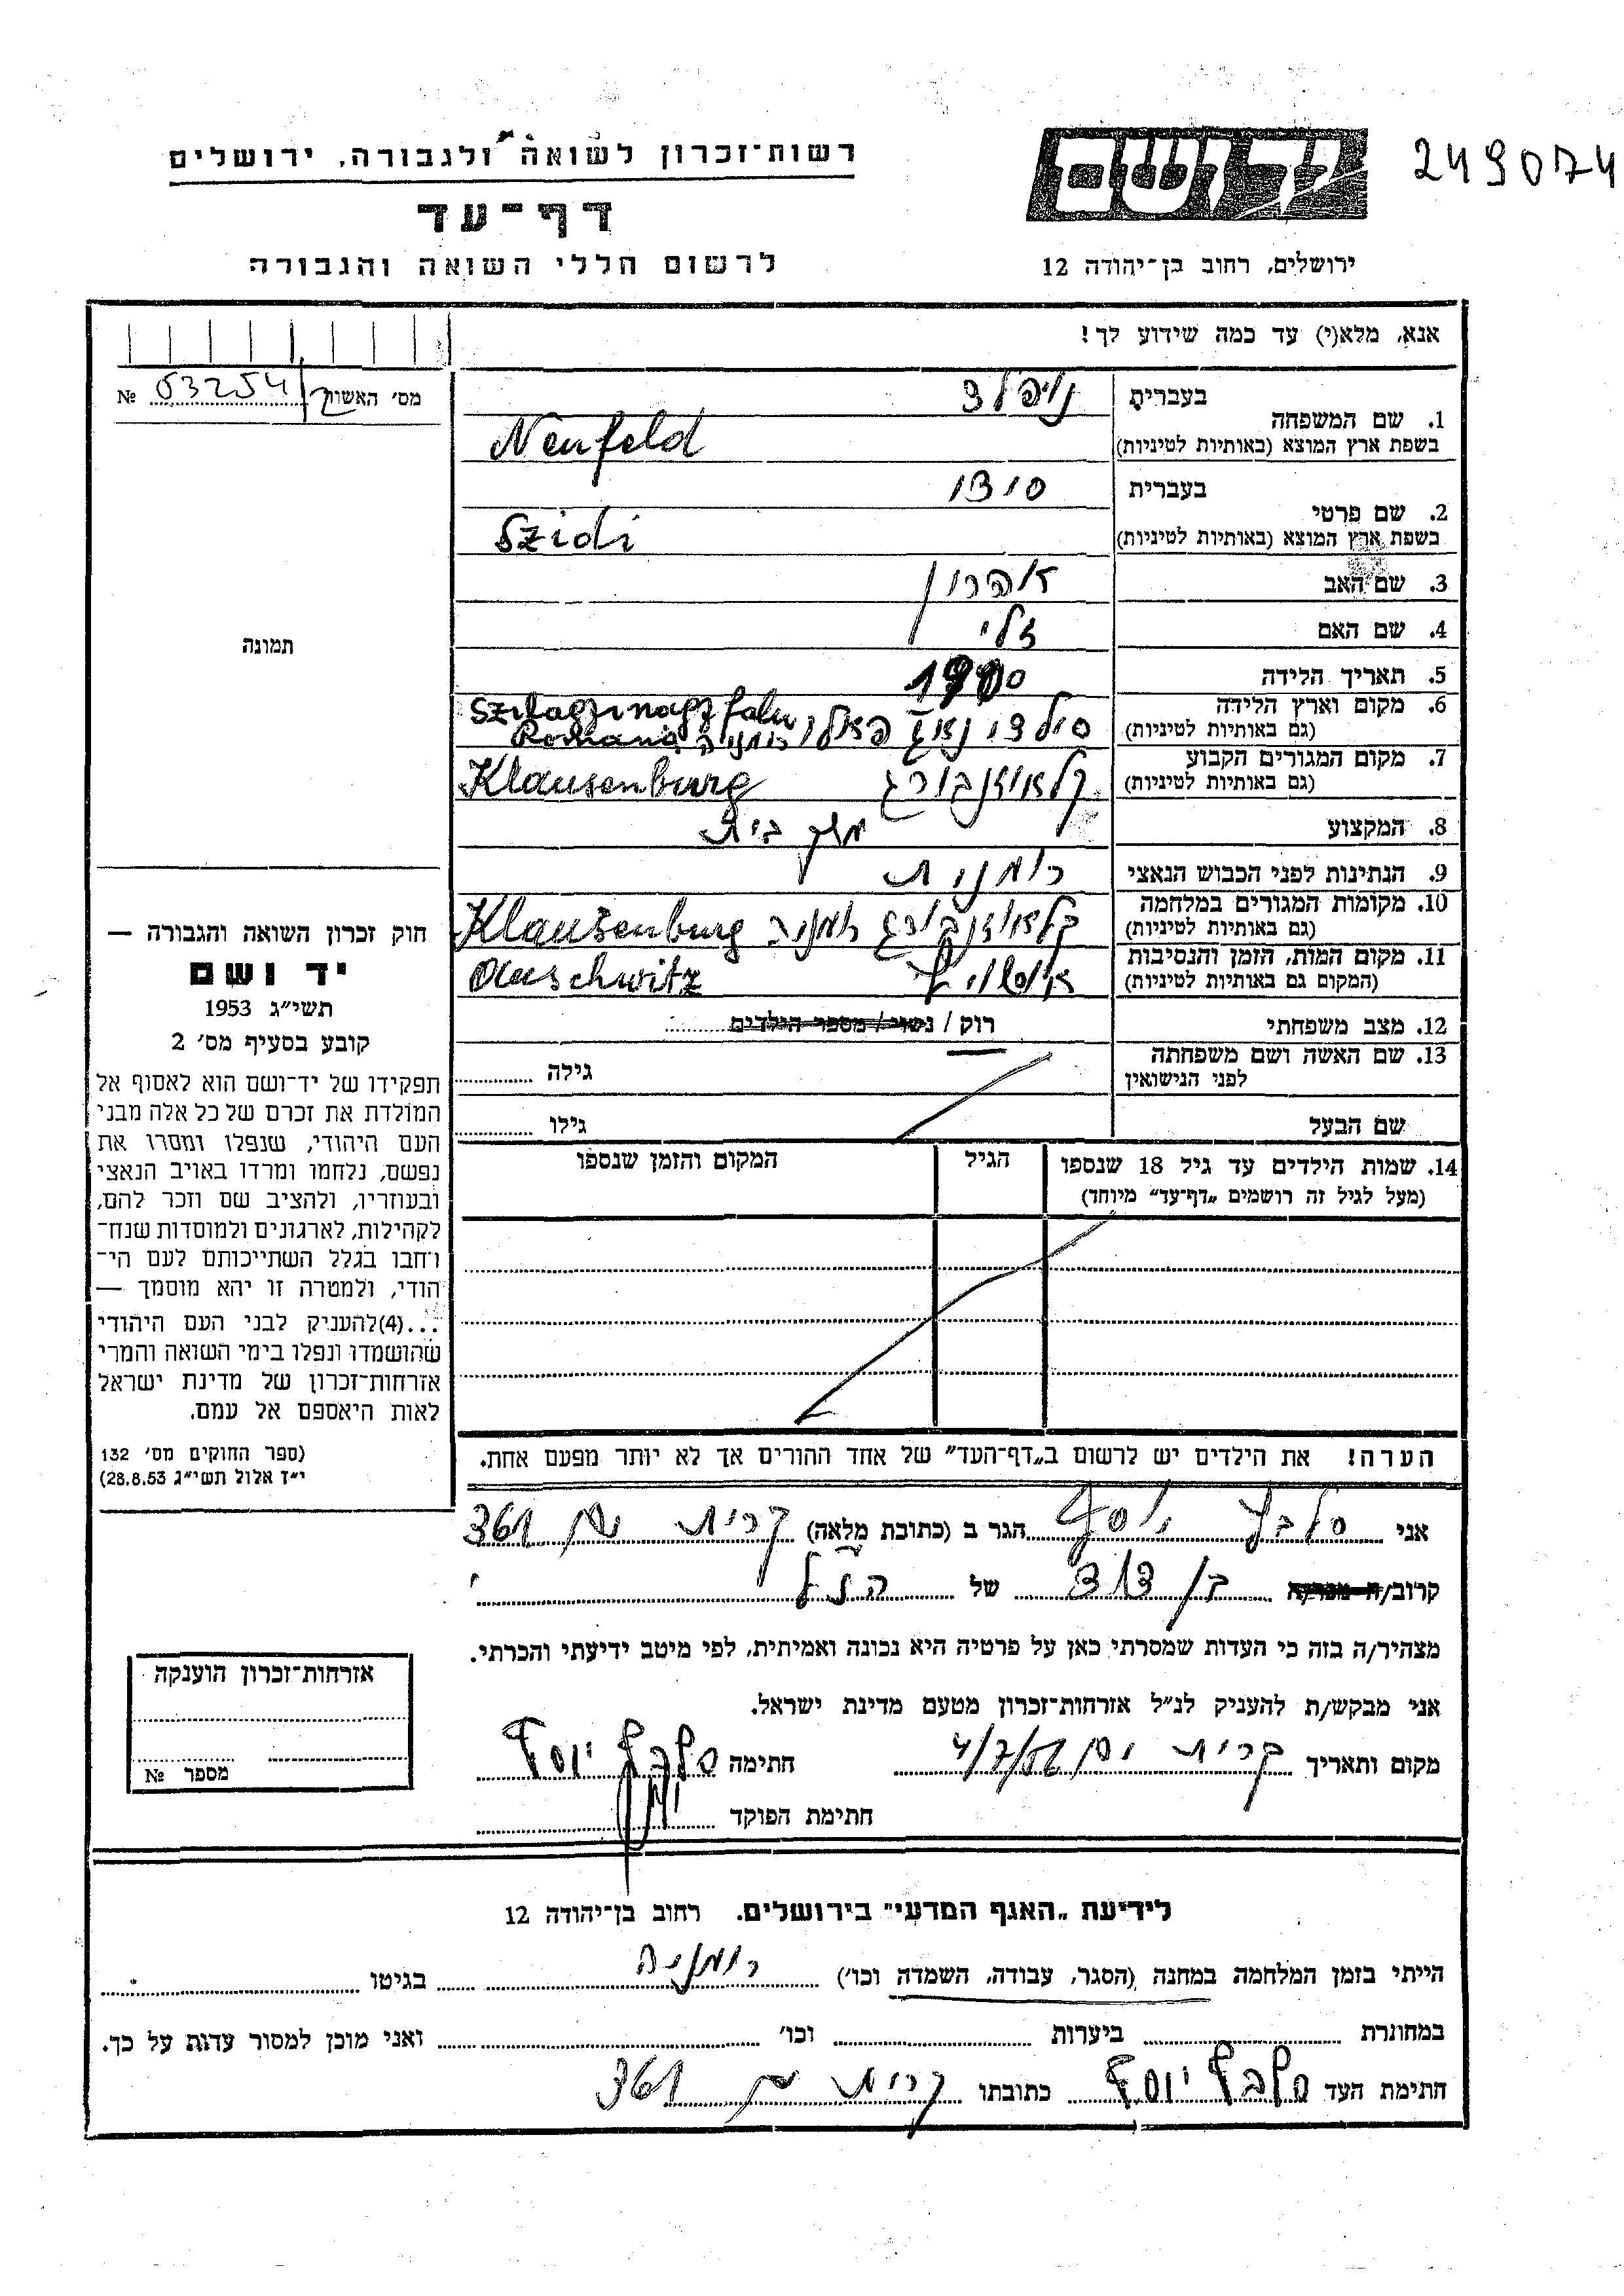 רשות־זכרון לשואה ולגבורה, ירושלים
יד ושם
249074
דף־עד
לרשום חללי השואה והגבורה
ירושלים, רחוב בן־יהודה 12
אנא, מלא(י) עד כמה שידוע לך!
מס׳ האשות № 53254
1. שם המשפחה
בעברית
בשפת ארץ המוצא (באותיות לטיניות)
נויפלד
Neufeld
2. שם פרטי
בעברית
בשפת ארץ המוצא (באותיות לטיניות)
סידי
Szidi
3. שם האב
אהרון
4. שם האם
5. תאריך הלידה
6. מקום וארץ הלידה
(גם באותיות לטיניות)
רומניה
7. מקום המגורים הקבוע
(גם באותיות לטיניות)
קלאוזנבורג Klausenburg
8. המקצוע
משק בית
9. הנתינות לפני הכבוש הנאצי
רומנית
10. מקומות המגורים במלחמה
(גם באותיות לטיניות)
קלאוזנבורג רומניה Klausenburg
11. מקום המות, הזמן והנסיבות
(המקום גם באותיות לטיניות)
Auschwitz
12. מצב משפחתי
רוק / נשוי / מספר הילדים
13. שם האשה ושם משפחתה
לפני הנישואין
גילה
שם הבעל
גילו
14. שמות הילדים עד גיל 18 שנספו
(מעל לגיל זה רושמים „דף־עד" מיוחד)
הגיל
המקום והזמן שנספו
תמונה
חוק זכרון השואה והגבורה —
יד ושם
תשי״ג 1953
קובע בסעיף מס׳ 2
תפקידו של יד־ושם הוא לאסוף אל
המולדת את זכרם של כל אלה מבני
העם היהודי, שנפלו ומסרו את
נפשם, נלחמו ומרדו באויב הנאצי
ובעוזריו, ולהציב שם וזכר להם,
לקהילות, לארגונים ולמוסדות שנח־
רחבו בגלל השתייכותם לעם הי־
הודי, ולמטרה זו יהא מוסמך —
...(4)להעניק לבני העם היהודי
שהושמדו ונפלו בימי השואה והמרי
אזרחות־זכרון של מדינת ישראל
לאות היאספם אל עמם.
(ספר החוקים מס׳ 132
י״ז אלול תשי״ג 28.8.53)
הערה! את הילדים יש לרשום ב„דף־העד" של אחד ההורים אך לא יותר מפעם אחת.
אני יוסף הגר ב (כתובת מלאה) קרית ים 361
קרוב/ה בן דוד של הנ״ל
מצהיר/ה בזה כי העדות שמסרתי כאן על פרטיה היא נכונה ואמיתית, לפי מיטב ידיעתי והכרתי.
אני מבקש/ת להעניק לנ״ל אזרחות־זכרון מטעם מדינת ישראל.
מקום ותאריך קרית ים חתימה יוסף
חתימת הפוקד
אזרחות־זכרון הוענקה
מספר №
לידיעת „האגף המדעי" בירושלים. רחוב בן־יהודה 12
הייתי בזמן המלחמה במחנה (הסגר, עבודה, השמדה וכו׳) רומניה בגיטו
במחונרת ביערות וכו׳ ואני מוכן למסור עדות על כך.
חתימת העד יוסף כתובתו קרית ים 361